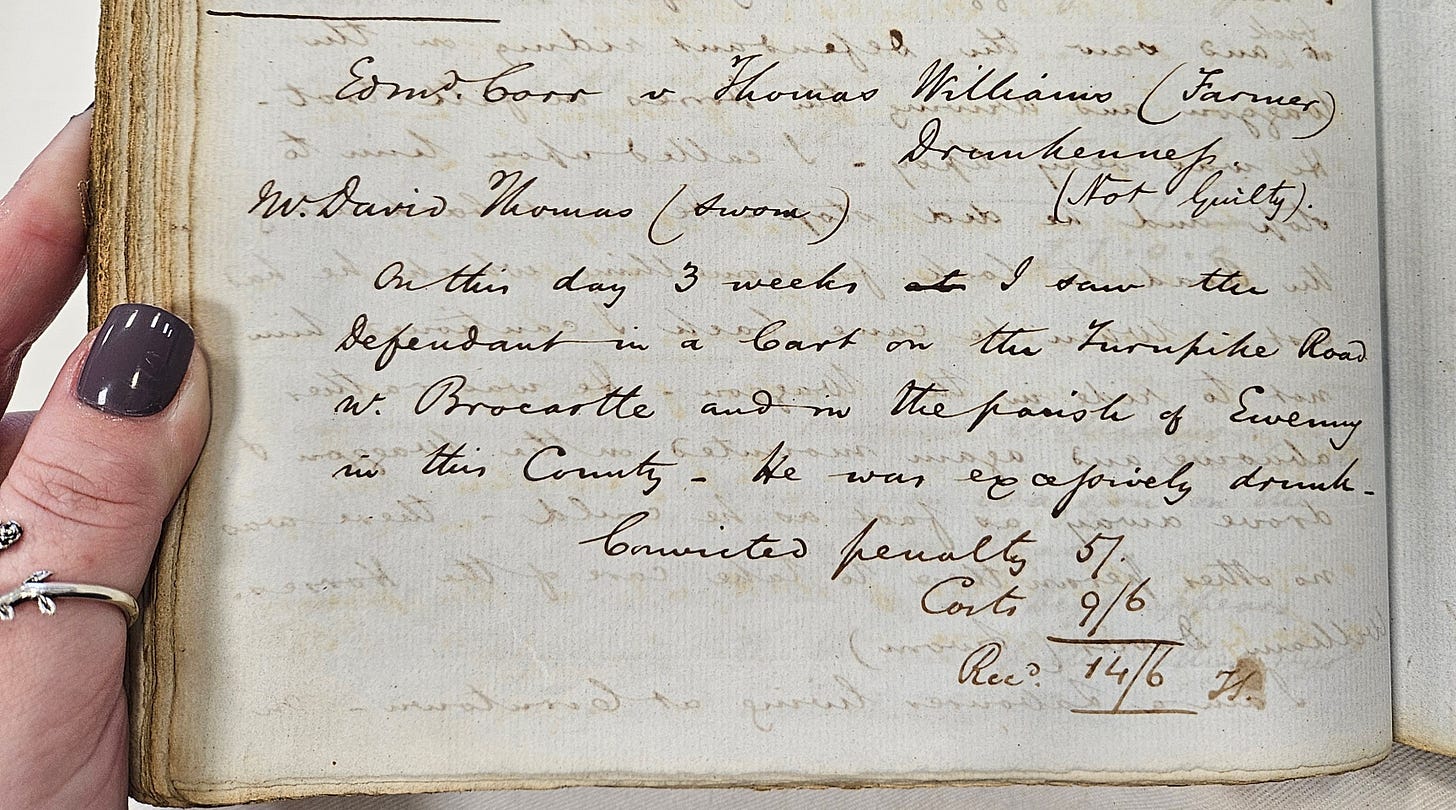 Edmd. Carr v Thomas Williams (Farmer)
Drunkenness.
(Not Guilty).
Mr. David Thomas (sworn)
On this day 3 weeks at I saw the
Defendant in a Cart on the Turnpike Road
nr. Brocastle and in the parish of Ewenny
in this County - He was excessively drunk -
Convicted penalty 5/.
Costs 9/6
Recd. 14/6